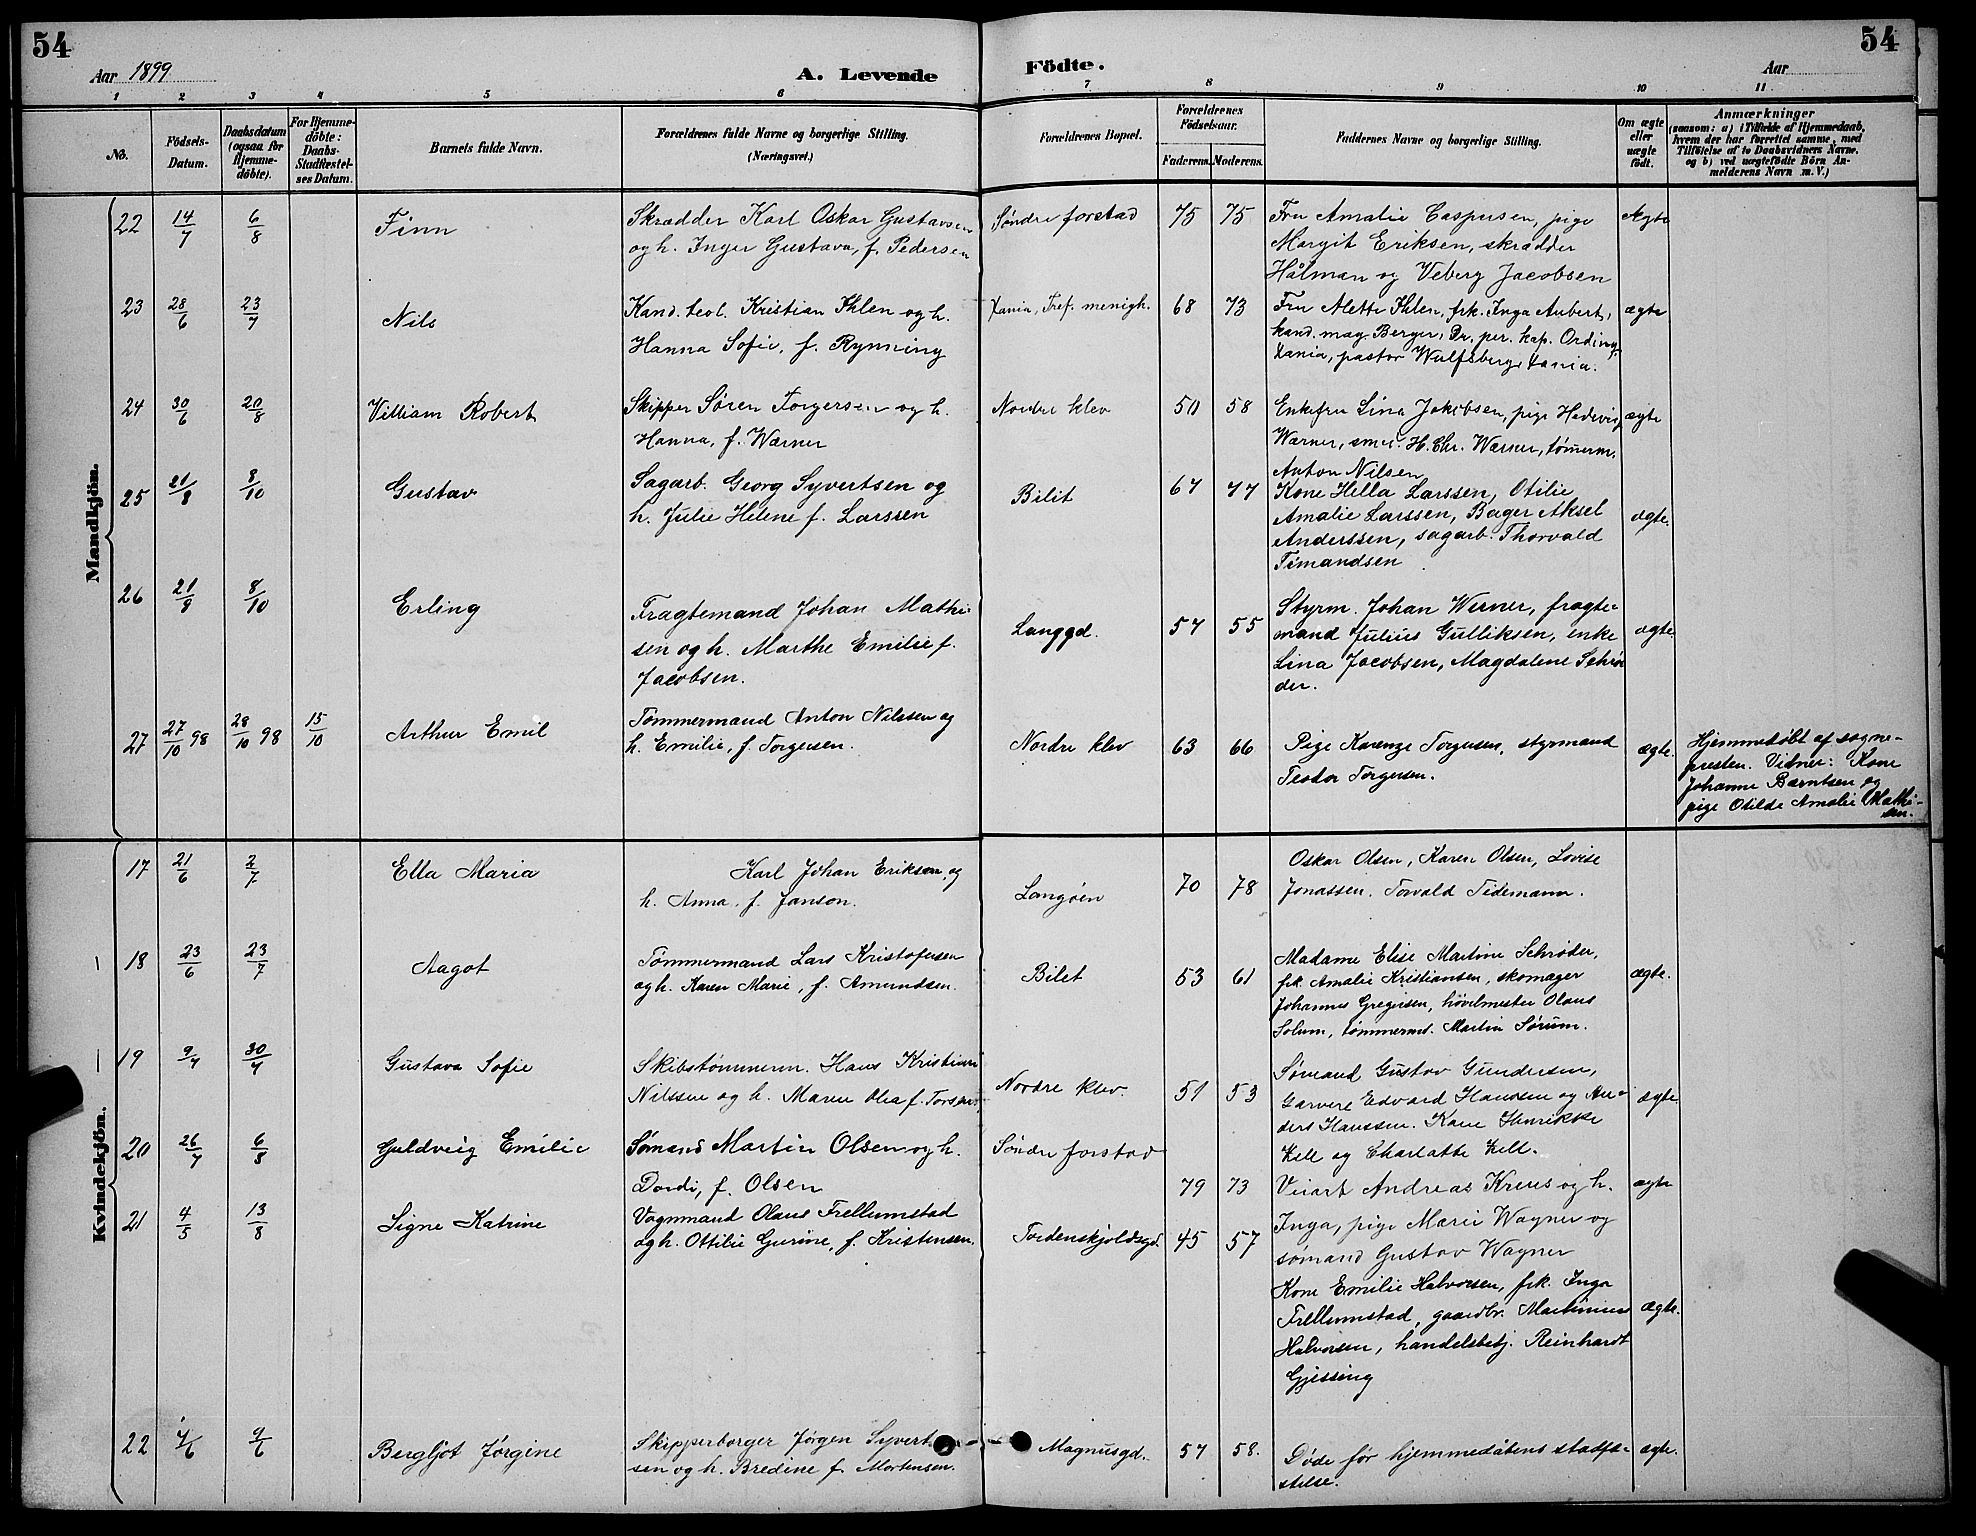 54
54
Aar 1899
A. Levende
Födte.
Aar
1 2 3 4 5 6 7 8 9 10 11
No.
Födsels-
Datum.
Daabsdatum
(ogsaa for
Hjemme-
döbte).
For Hjemme-
döbte:
Daabs-
Stadfæstel-
ses Datum.
Barnets fulde Navn.
Forældrenes fulde Navne og borgerlige Stilling.
(Næringsvei.)
Forældrenes Bopæl.
Forældrenes
Födselsaar.
Faderens. Moderens.
Faddernes Navne og borgerlige Stilling.
Om ægte
eller
uægte
födt.
Anmærkninger
(saasom: a) i Tilfælde af Hjemmedaab,
hvem der har forrettet samme, med
Tilföielse af to Daabsvidners Navne,
og b) ved uægtefödte Börn An-
melderens Navn m. V.)
Mandkjön.
22 14/7 6/8 Finn
Skrædder Karl Oskar Gustavsen
og h. Inger Gustava, f. Pedersen
Søndre forstad 75 75
Fru Amalie Caspersen, pige
Margit Eriksen, skrædder
Hålman og Veberg Jacobsen
Ægte
23 28/6 23/7 Nils
Kand. teol. Kristian Ihlen og h.
Hanna Sofie, f. Rynning
Xania, Tref. menigh. 68 73
Fru Alette Ihlen, frk. Inga Aubert,
kand. mag Berger, Dr. per. kap. Ording,
Xania, pastor Wulfsberg, Xania.
ægte
24 30/6 20/8 Villiam Robert
Skipper Søren Torgersen og h.
Hanna, f. Wærner
Nordre klev 50 58
Enkefru Lina Jakobsen, pige Hedevig
Wærner, smed H. Chr. Wærner, tømerm.
Anton Nilsen
ægte
25 21/8 8/10 Gustav
Sagarb. Georg Syvertsen og
h. Julie Helene f. Larssen
Bilit 67 77
Kone Hella Larssen, Otilie
Amalie Larssen, Bager Aksel
Anderssen, sagarb. Thorvald
Timandsen
ægte.
26 21/9 8/10 Erling
Fragtemand Johan Mathi-
sen og h. Marthe Emilie f.
Jacobsen.
Langgd. 57 55
Styrm. Johan Werner, fragte-
mand Julius Gulliksen, enke
Lina Jacobsen, Magdalene Schrö
der.
ægte.
27 27/10 98 28/10 98 15/10 Arthur Emil
Tømmermand Anton Nilssen og
h. Emilie, f. Torgersen.
Nordre klev 63 66
Pige Karenze Torgersen, styrmand
Teodor Torgersen.
ægte.
Hjemmedøbt af sogne-
presten. Vidner: Kone
Johanne Berntsen og
pige Otilde Amalie Mathi-
sen.
Kvindekjön.
17 21/6 2/7 Ella Maria
Karl Johan Eriksen, og
h. Anna. f. Janson.
Langøen 70 78
Oskar Olsen, Karen Olsen, Lovise
Jonassen. Torvald Tidemann.
18 23/6 23/7 Aagot
Tømmermand Lars Kristofersen
og h. Karen Marie, f. Amundsen.
Bilet 53 61
Madame Elise Martine Schrøder,
frk. Amalie Kristiansen, skomager
Johannes Gregersen, høvelmester Olaus
Solum, tømmermd. Martin Sørum.
ægte.
19 9/4 30/4 Gustava Sofie
Skibstømmerm. Hans Kristian
Nilssen og h. Maren Olea f. Torsen
Nordre klev. 51 53
Sømand Gustav Gundersen,
Garvere Edvard Hanssen og An-
ders Hanssen. Kone Henrikke
Lell og Charlotte Lell.
ægte
20 26/7 6/8 Guldveig Emilie
Sømand Martin Olsen og h.
Dordi, f. Olsen
Søndre forstad
79 73
Andreas Kreus og h.
Inga, pige Marie Wagner og
sømand Gustav Wagner
ægte
21 4/5 13/8 Signe Katrine
Vognmand Olaus Frellumstad
og h. Ottilie Gurine, f. Kristensen.
Tordenskjoldsgd. 45 57
Kone Emilie Halvorsen, frk. Inga
Frellumstad, gaardbr. Martinius
Halvorsen, handelsbetj. Reinhardt
Gjessing
ægte.
22 4/6 9/6 Bergljot Jørgine
Skipperborger Jørgen Syvert-
sen og h. Bredine f. Mortensen.
Magnusgd. 57 58.
Døde før hjemmedåbens stadfæ-
stelse.
ægte.